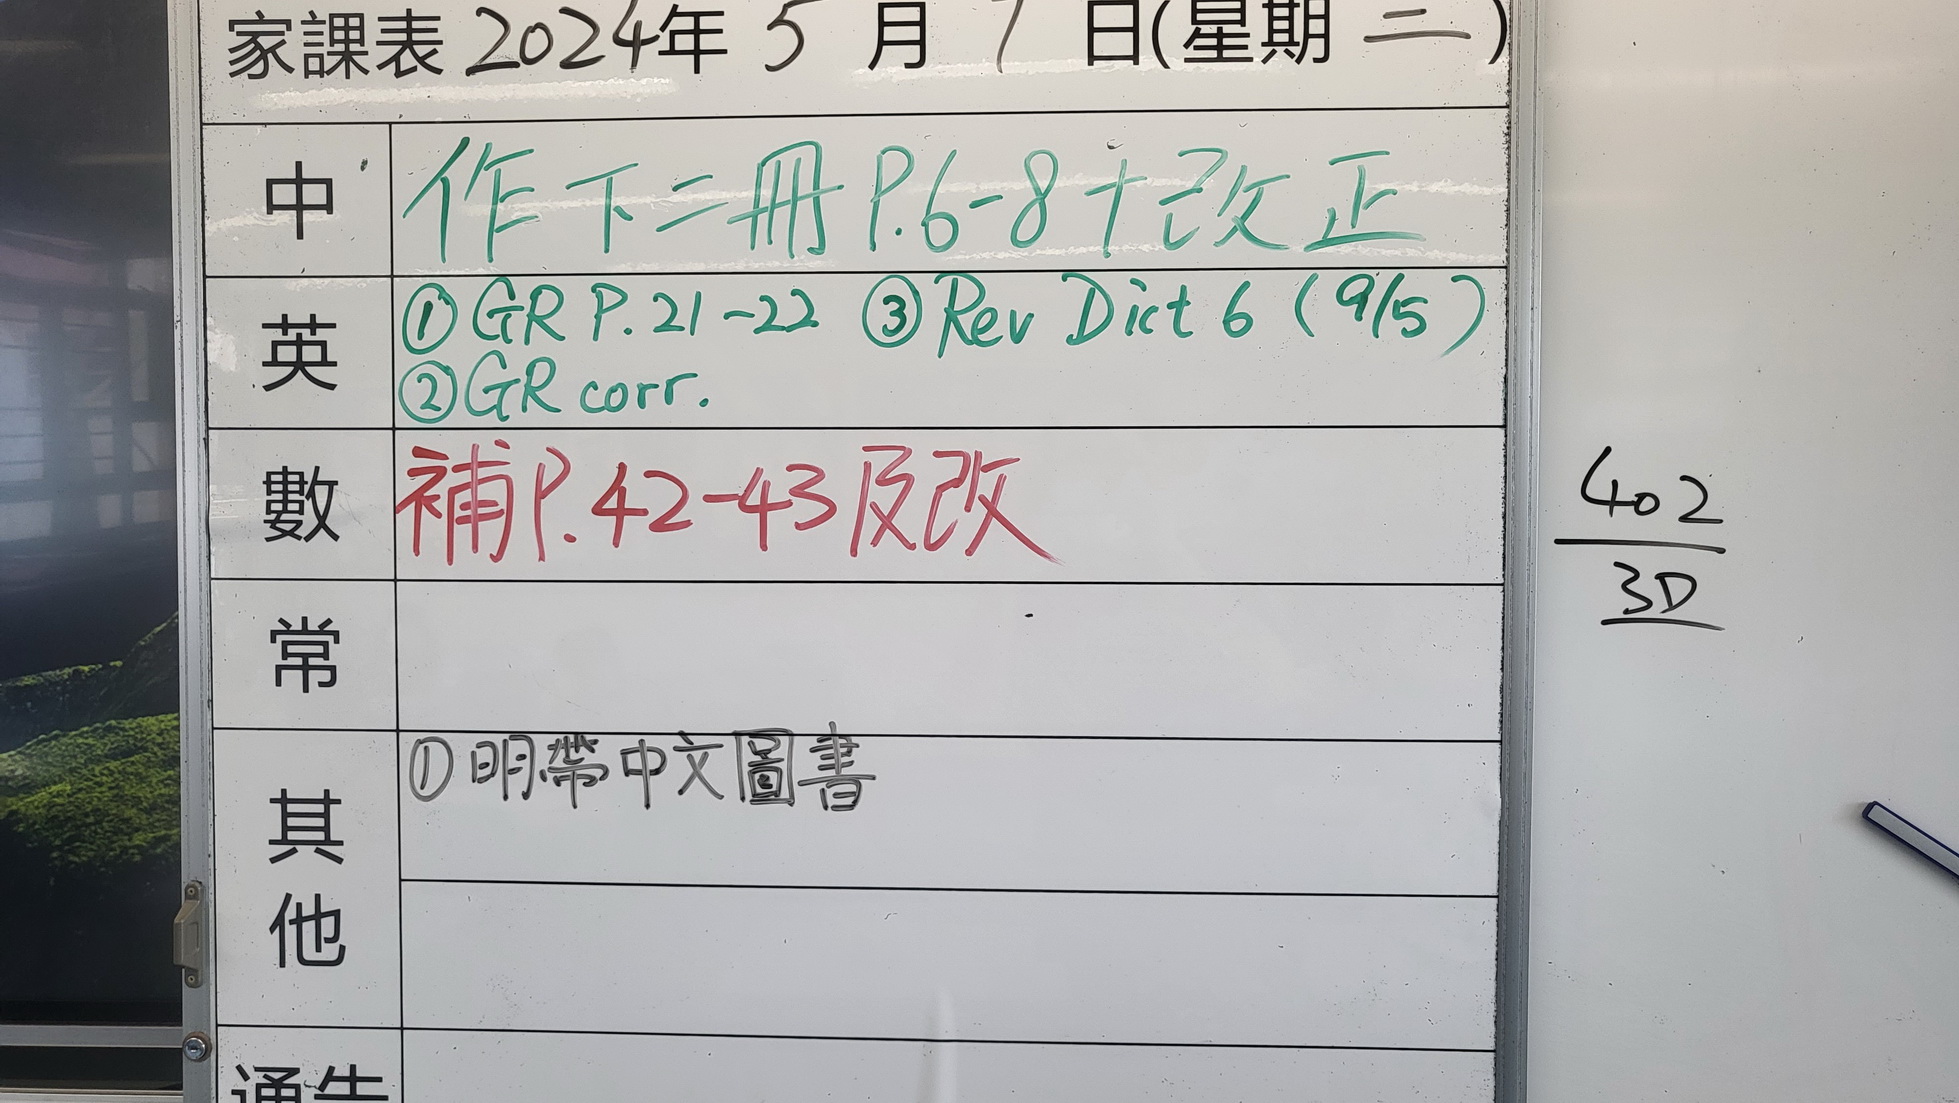 家課表 2024年 5 月 7 日(星期 二)
中 作下二冊 P.6-8十改正
英 ① GR P.21-22 ③ Rev Dict 6 (9/5)
② GR corr.
數 補P.42-43及改
常
其他 ① 明帶中文圖書
通告
402
3D